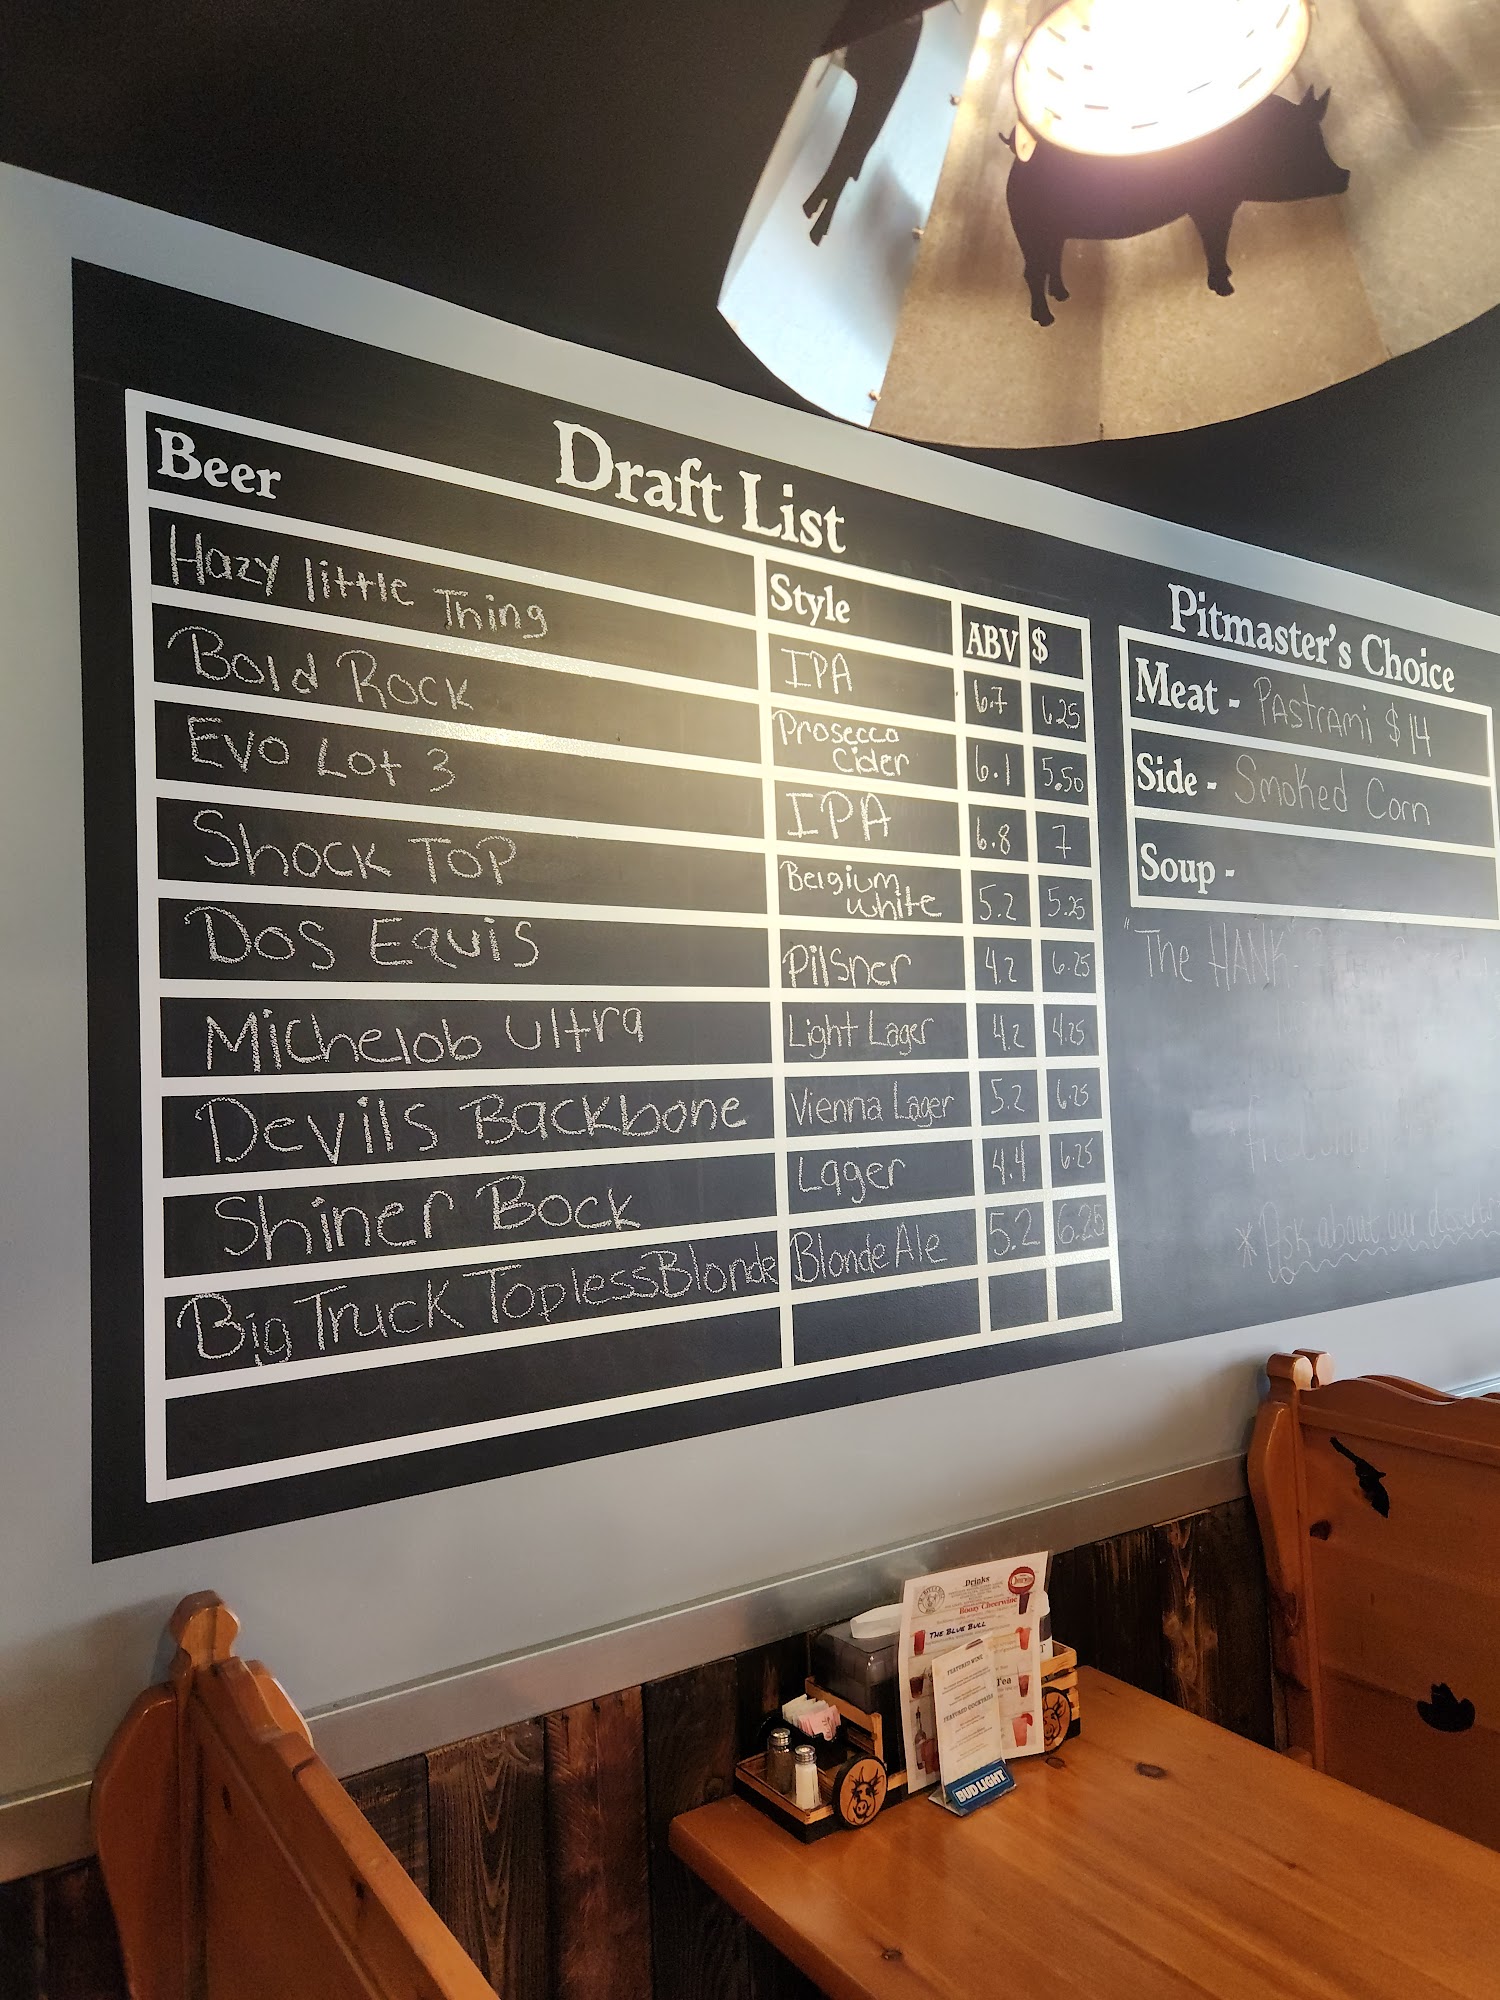 Draft List
Beer Style ABV $
Hazy little Thing IPA 6.7 6.25
Bold Rock Prosecco Cider 6.1 5.50
Evo Lot 3 IPA 6.8 7
Shock Top Belgium white 5.2 5.25
Dos Equis Pilsner 4.2 6.25
Michelob Ultra Light Lager 4.2 4.25
Devils Backbone Vienna Lager 5.2 6.25
Shiner Bock Lager 4.4 6.25
Big Truck Topless Blonde Blonde Ale 5.2 6.25
Pitmaster's Choice
Meat - Pastrami $14
Side - Smoked Corn
Soup -
"The HANK"
* Ask about our
Drinks
Cheerwine
Boozy Cheerwine
THE BLUE BULL
FEATURED WINE
Tea
FEATURED COCKTAILS
BUD LIGHT